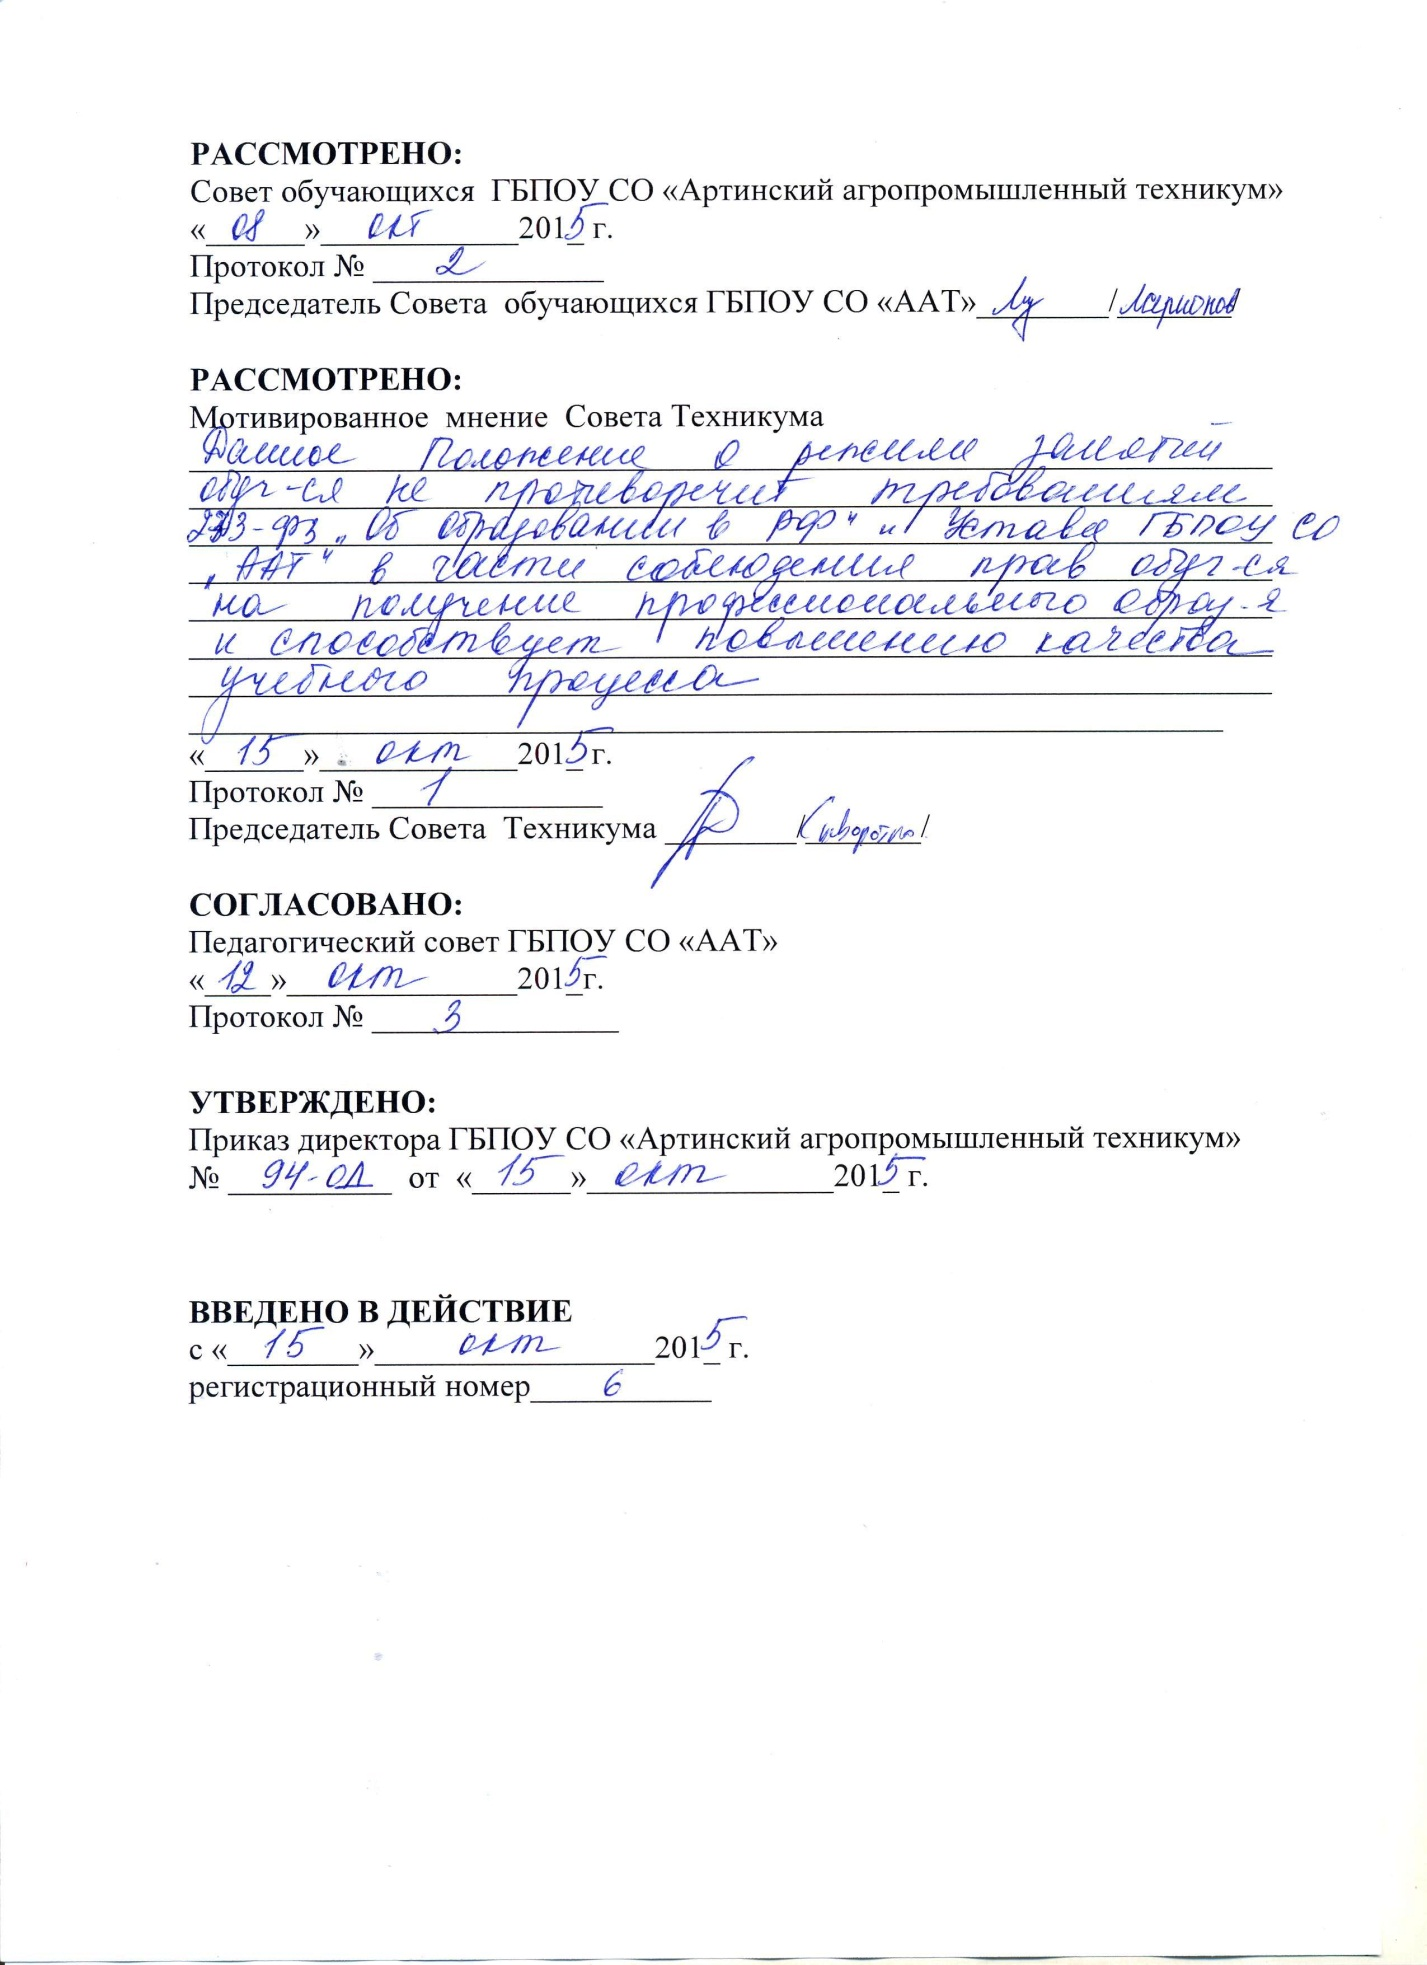 РАССМОТРЕНО:
Совет обучающихся ГБПОУ СО «Артинский агропромышленный техникум»
«08» окт 2015 г.
Протокол № 2
Председатель Совета обучающихся ГБПОУ СО «ААТ» / Ларионов
РАССМОТРЕНО:
Мотивированное мнение Совета Техникума
Данное Положение о режиме занятий
обуч-ся не противоречит требованиям
273-фз „Об образовании в РФ“ и Устава ГБПОУ СО
„ААТ“ в части соблюдения прав обуч-ся
на получение профессионального образ-я
и способствует повышению качества
учебного процесса
«15» окт 2015 г.
Протокол № 1
Председатель Совета Техникума / /
СОГЛАСОВАНО:
Педагогический совет ГБПОУ СО «ААТ»
«12» окт 2015г.
Протокол № 3
УТВЕРЖДЕНО:
Приказ директора ГБПОУ СО «Артинский агропромышленный техникум»
№ 94-ОД от «15» окт 2015 г.
ВВЕДЕНО В ДЕЙСТВИЕ
с «15» окт 2015 г.
регистрационный номер 6